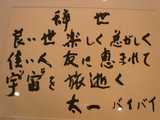 辞世
良い世 楽しく 悲かしく
佳い人 友に 恵まれて
宇宙を 旅逝く
太一 バイバイ